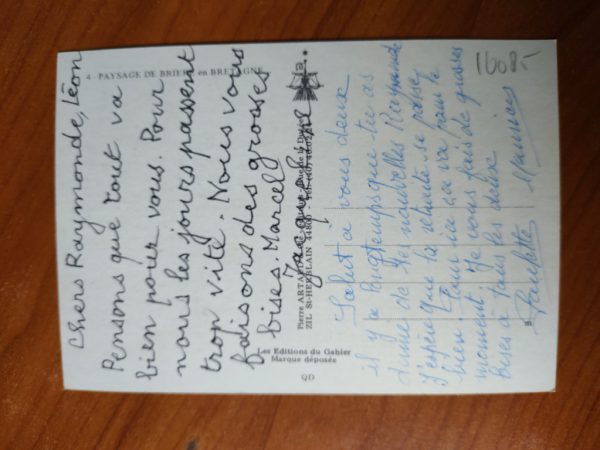 4 - PAYSAGE DE BRIERE en BRETAGNE
Chers Raymonde, Léon
Pensons que tout va
bien pour vous. Pour
nous les jours passent
trop vite. Nous vous
faisons des grosses
bises. Marcel
Jacqueline
Pierre ARTAUD
ZIL St-HERBLAIN 44800
Les Editions du Gabier
Marque déposée
QD
1600.-
Salut à vous deux
il y a longtemps que tu as
donné de tes nouvelles Raymonde
J'espère que la retraite se passe
bien Pour moi ça va pour le
moment Je vous fais de grosses
bises à tous les deux
Paulette Maurice